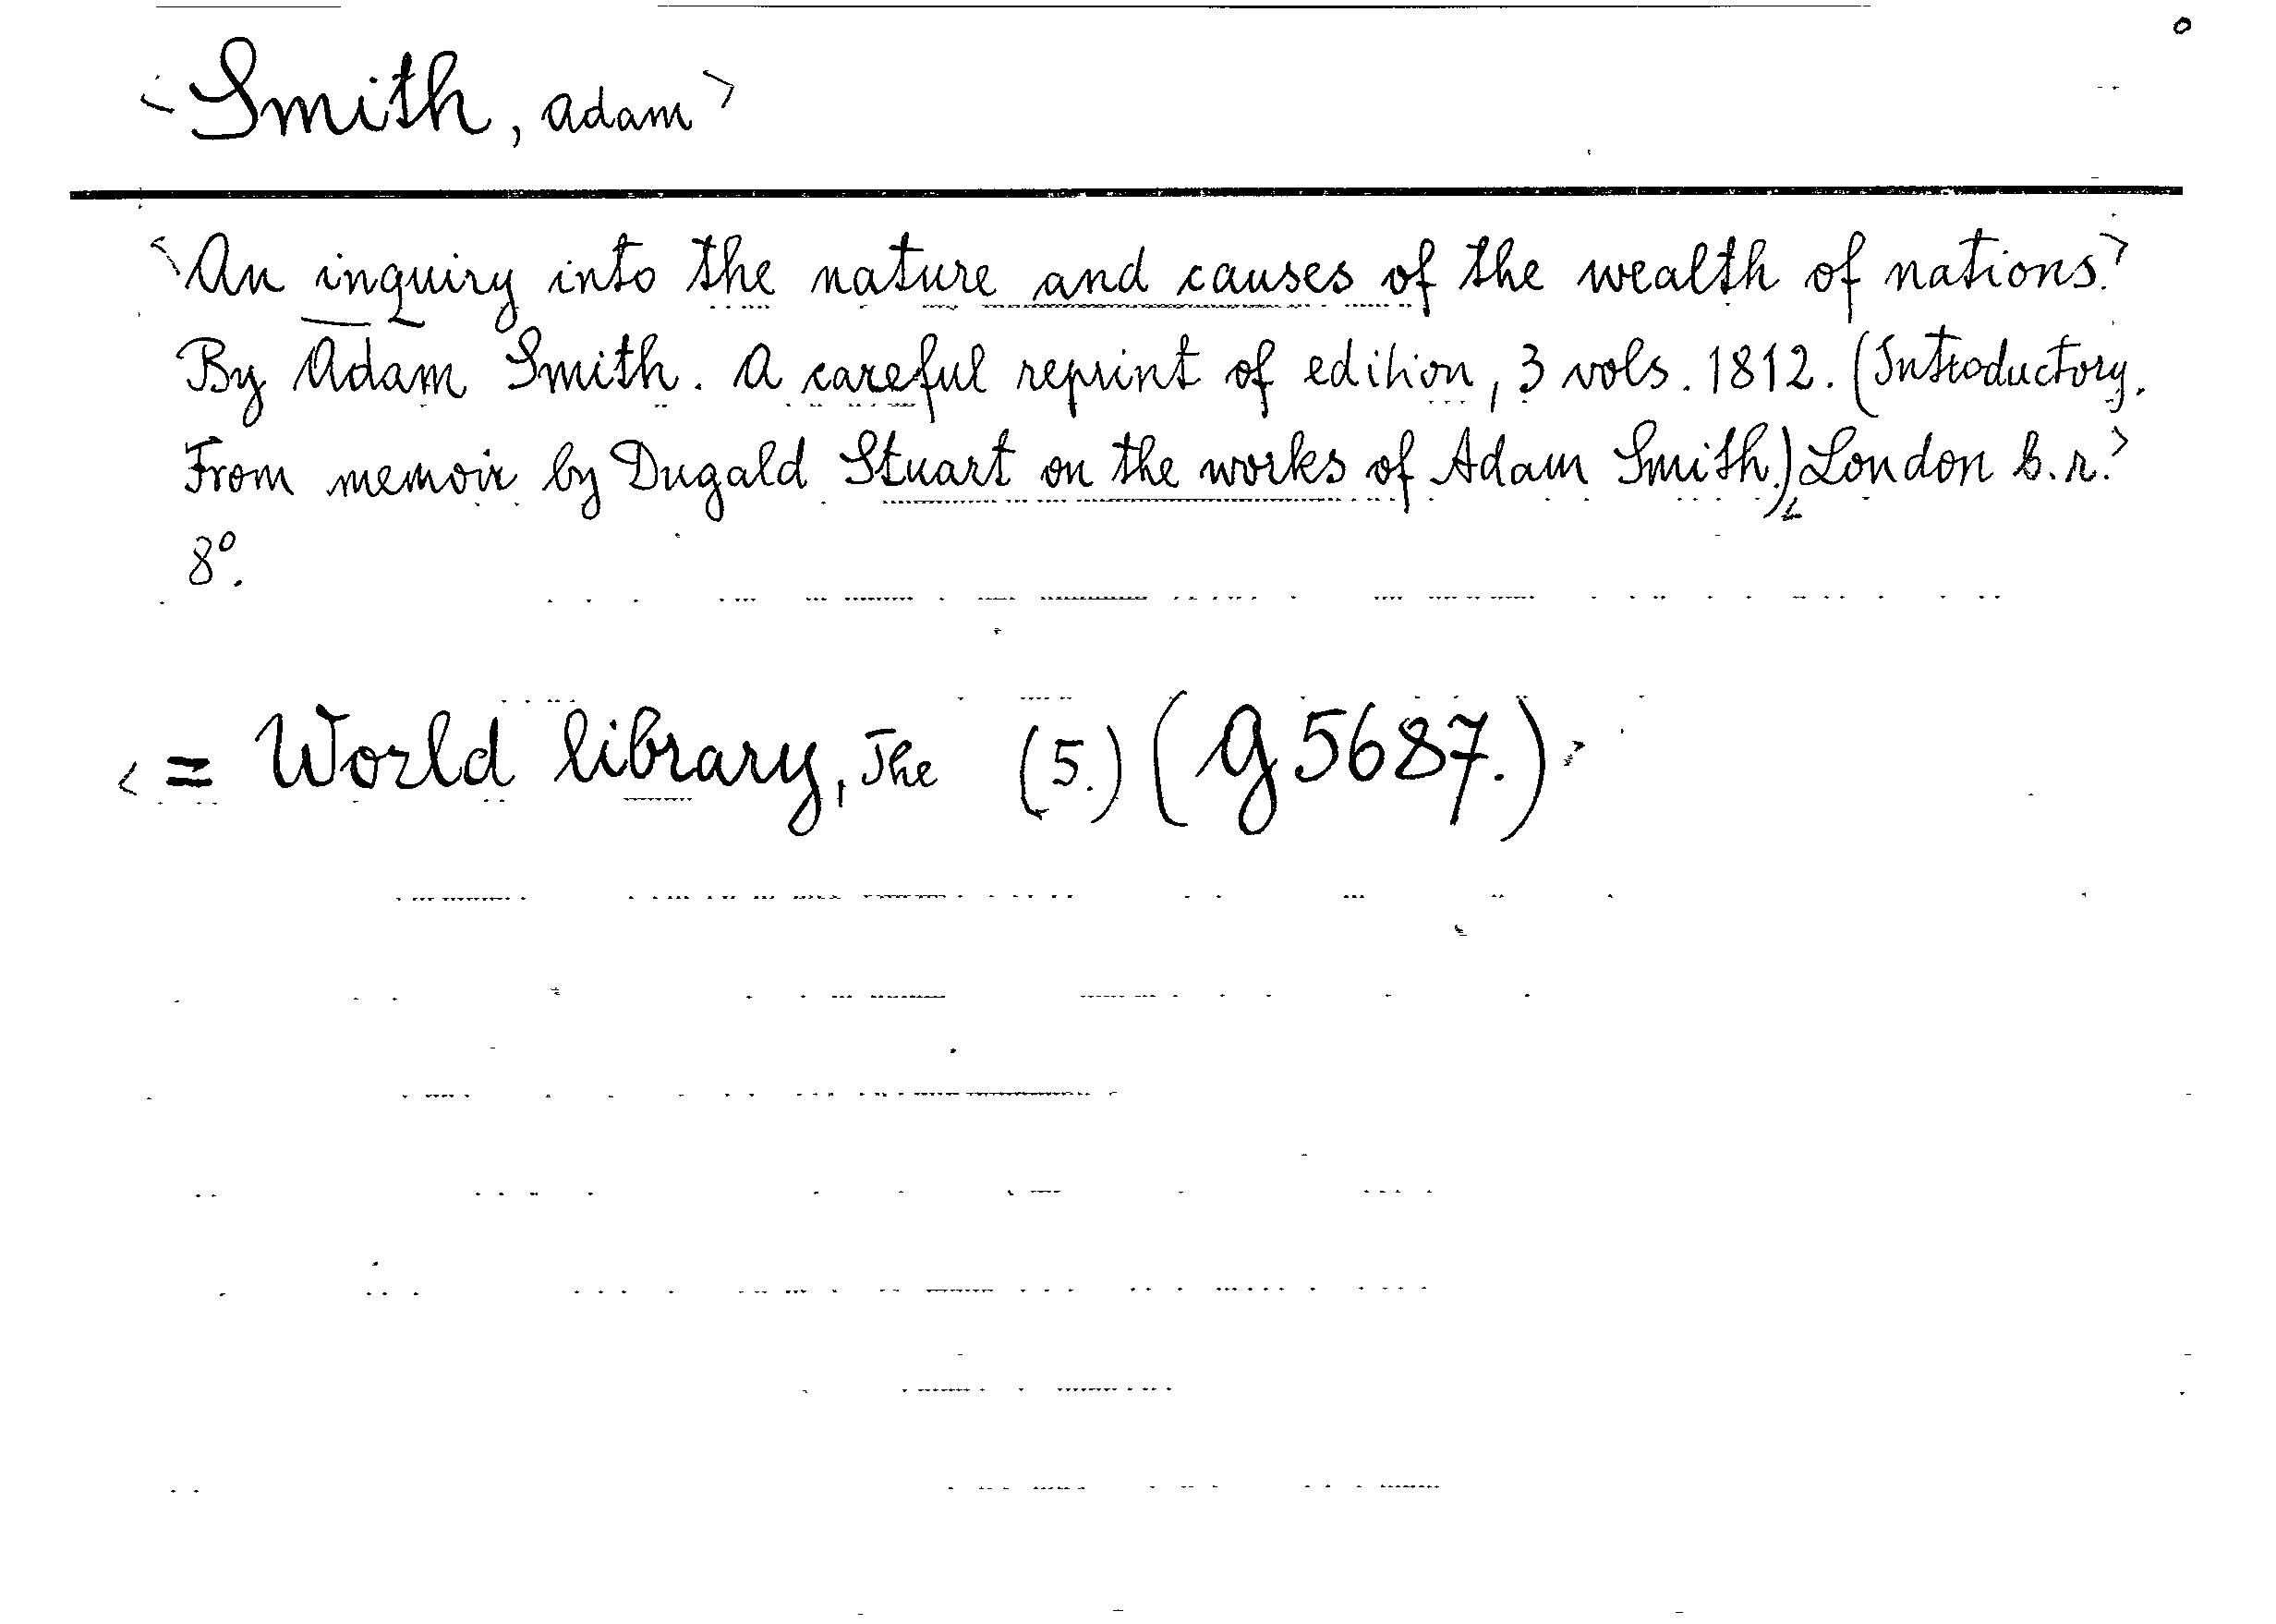 <Smith, Adam>
<An inquiry into the nature and causes of the wealth of nations.>
By Adam Smith. A careful reprint of edition, 3 vols. 1812. (Introductory.
From memoir by Dugald Stuart on the works of Adam Smith.) <London
8°.
<= World library, The (5.) (G 5687.)>